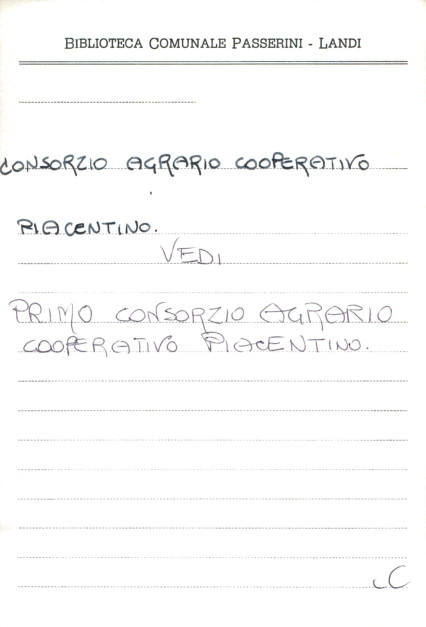 BIBLIOTECA COMUNALE PASSERINI - LANDI
CONSORZIO AGRARIO COOPERATIVO
PIACENTINO.
VEDI
PRIMO CONSORZIO AGRARIO
COOPERATIVO PIACENTINO.